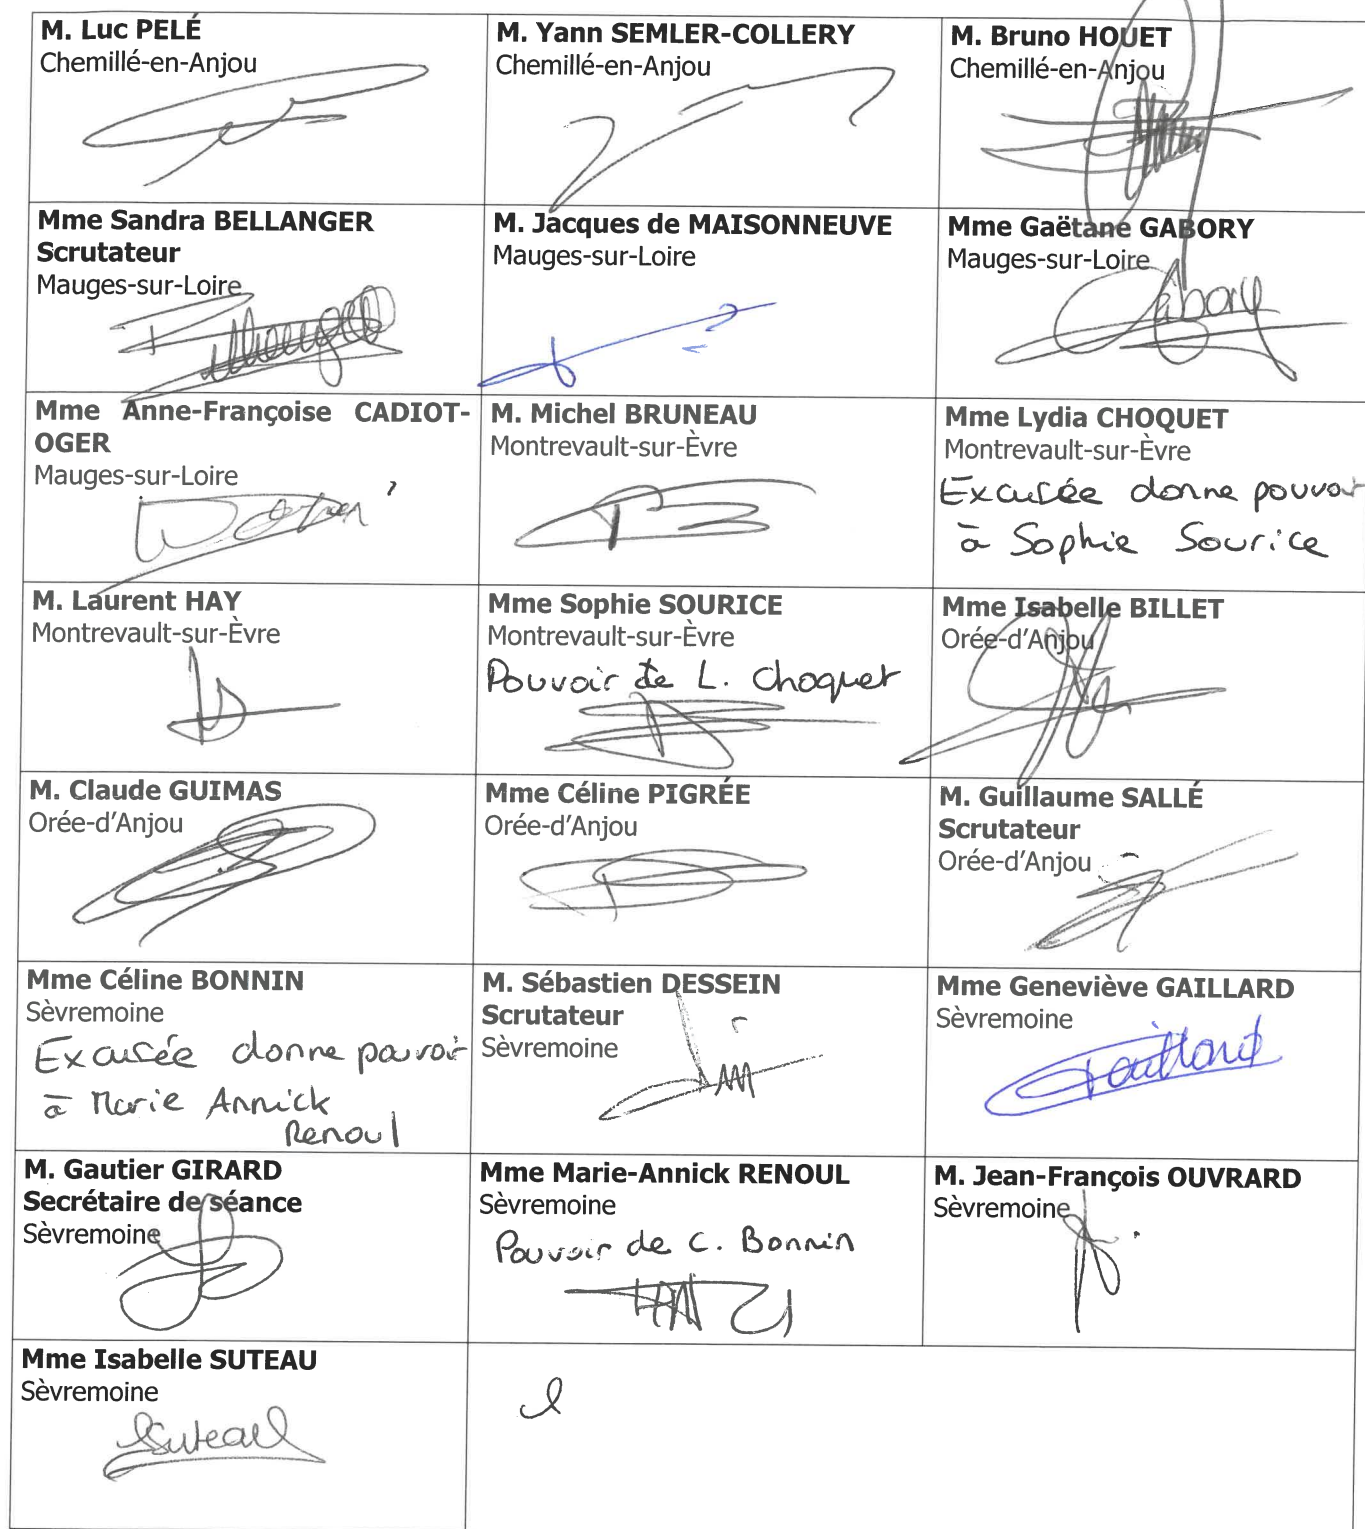 M. Luc PELÉ
Chemillé-en-Anjou
M. Yann SEMLER-COLLERY
Chemillé-en-Anjou
M. Bruno HOUET
Chemillé-en-Anjou
Mme Sandra BELLANGER
Scrutateur
Mauges-sur-Loire
M. Jacques de MAISONNEUVE
Mauges-sur-Loire
Mme Gaëtane GABORY
Mauges-sur-Loire
Gabory
Mme Anne-Françoise CADIOT-
OGER
Mauges-sur-Loire
M. Michel BRUNEAU
Montrevault-sur-Èvre
Mme Lydia CHOQUET
Montrevault-sur-Èvre
Excusée donne pouvoir
à Sophie Sourice
M. Laurent HAY
Montrevault-sur-Èvre
Mme Sophie SOURICE
Montrevault-sur-Èvre
Pouvoir de L. Choquet
Mme Isabelle BILLET
Orée-d'Anjou
M. Claude GUIMAS
Orée-d'Anjou
Mme Céline PIGRÉE
Orée-d'Anjou
M. Guillaume SALLÉ
Scrutateur
Orée-d'Anjou
Mme Céline BONNIN
Sèvremoine
Excusée donne pouvoir
à Marie Annick
Renoul
M. Sébastien DESSEIN
Scrutateur
Sèvremoine
Mme Geneviève GAILLARD
Sèvremoine
Gaillard
M. Gautier GIRARD
Secrétaire de séance
Sèvremoine
Mme Marie-Annick RENOUL
Sèvremoine
Pouvoir de C. Bonnin
M. Jean-François OUVRARD
Sèvremoine
Mme Isabelle SUTEAU
Sèvremoine
Suteau